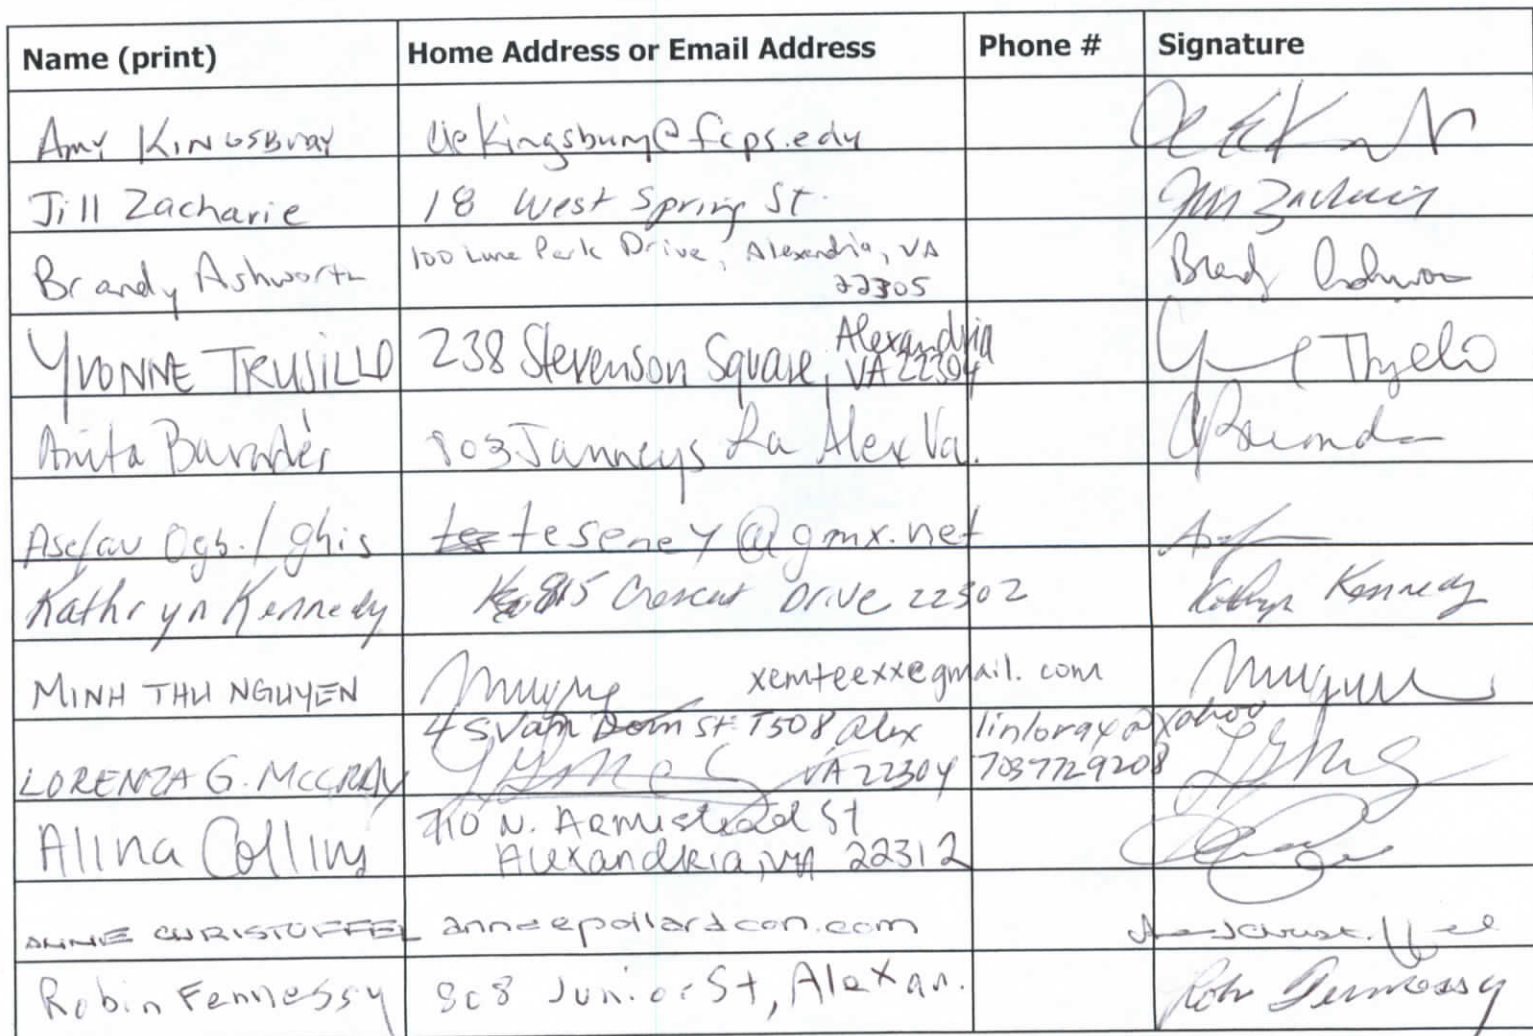 Name (print) Home Address or Email Address Phone # Signature
Amy Kingsbury aekingsbury@fcps.edu
Jill Zacharie 18 West Spring St. Jill Zacharie
Brandy Ashworth 100 Lune Park Drive, Alexandria, VA
22305
Yvonne Trujillo 238 Stevenson Square, Alexandria
VA 22304
Anita 803 Janneys La Alex Va.
teseney@gmx.net
Kathryn Kennedy 815 Crescent Drive 22302 Kathryn Kennedy
MINH THU NGUYEN xemteexx@gmail.com
4 S Van Dorn St T508 Alex linlorax@yahoo
LORENZA G. MCCRAY VA 22304 7037729208
Alina Collins 710 N. Armistead St
Alexandria, VA 22312
ANNIE CHRISTOFFEL annie@pollardcon.com
Robin Fennessy 808 Junior St, Alexan. Robin Fennessy